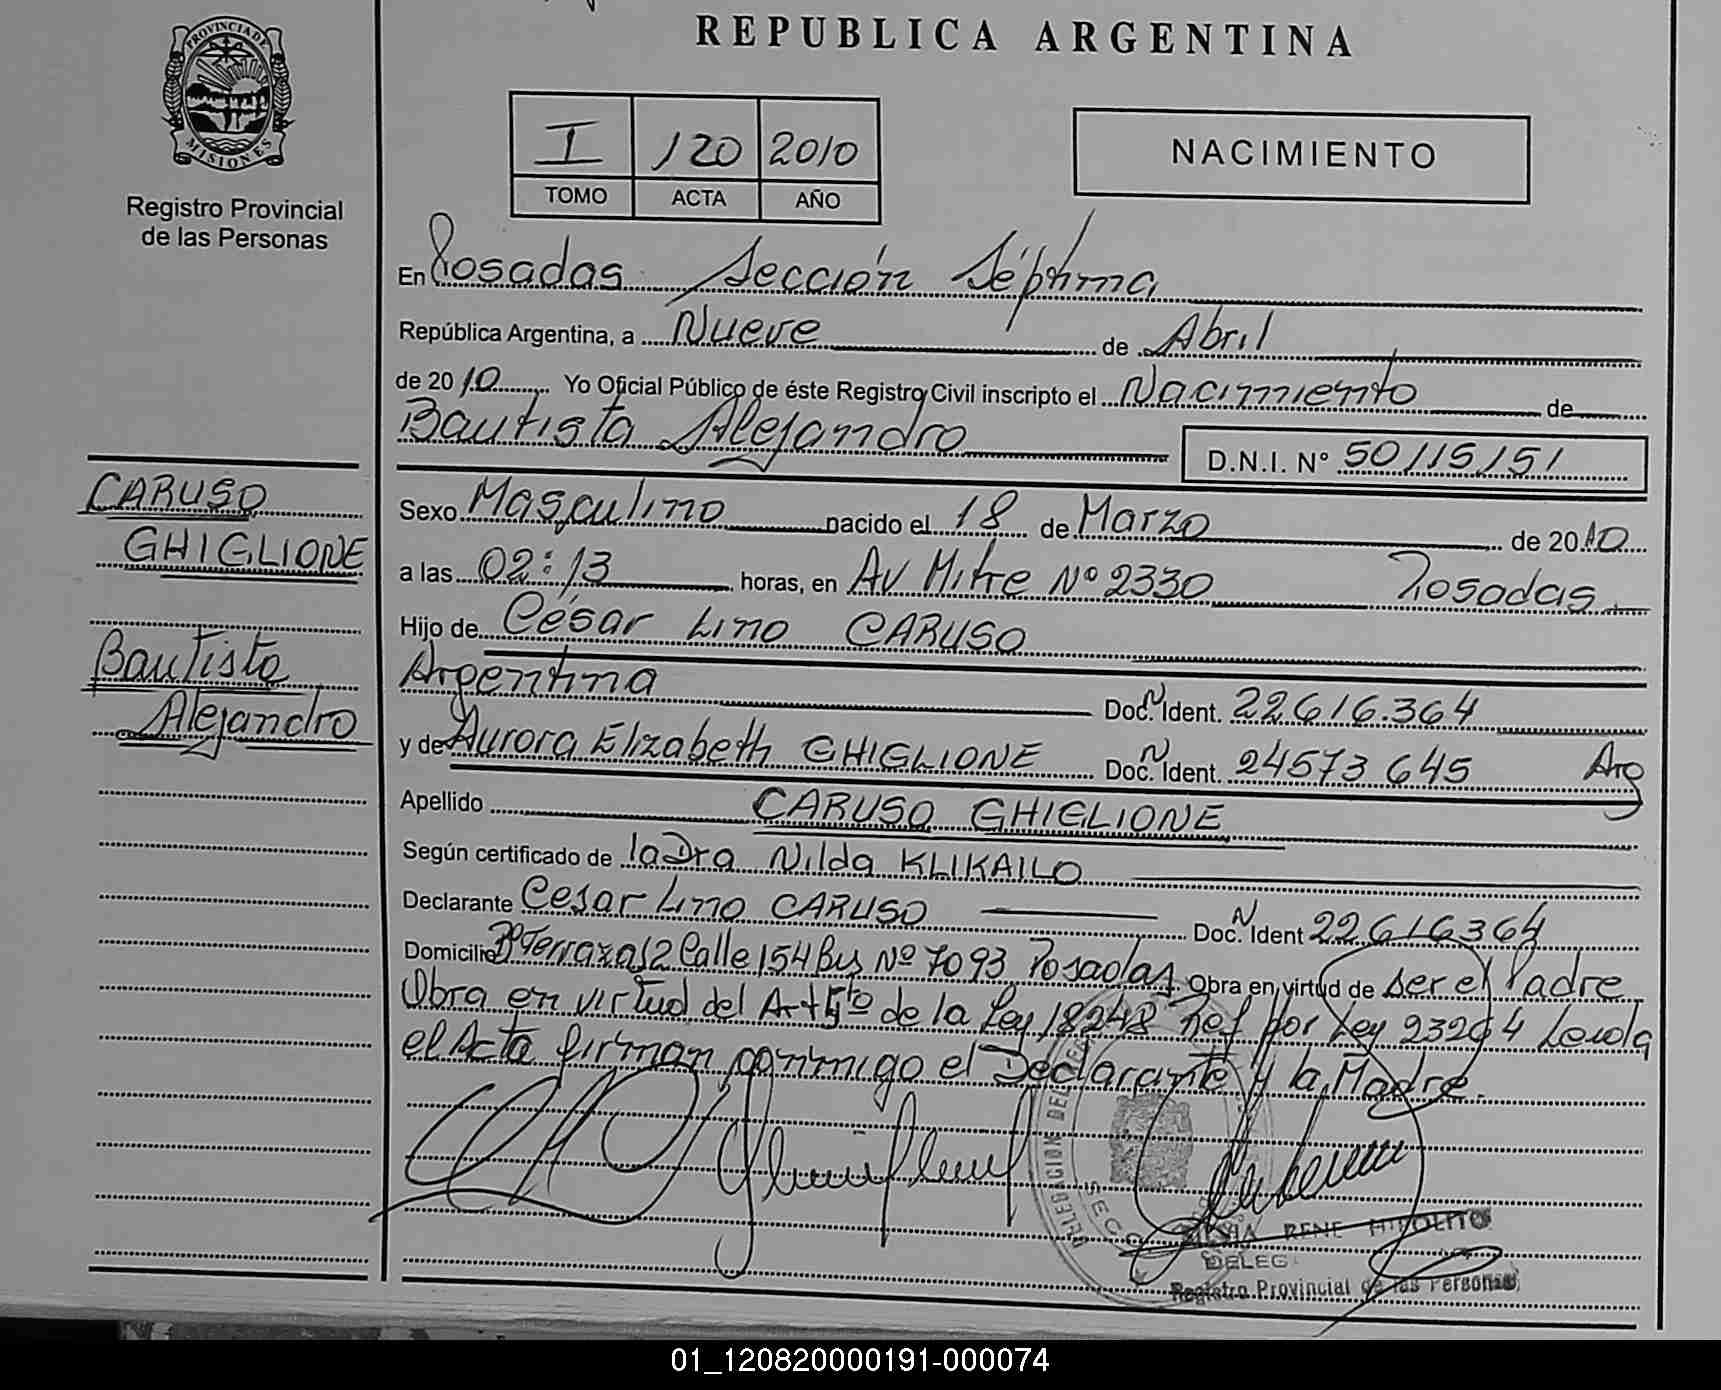 PROVINCIA DE
MISIONES
Registro Provincial
de las Personas
REPUBLICA ARGENTINA
I 120 2010
TOMO ACTA AÑO
NACIMIENTO
En Posadas Sección Séptima
República Argentina, a Nueve de Abril
de 2010 Yo Oficial Público de éste Registro Civil inscripto el Nacimiento de
Bautista Alejandro D.N.I. N° 50115151
CARUSO
GHIGLIONE
Bautista
Alejandro
Sexo Masculino nacido el 18 de Marzo de 2010
a las 02:13 horas, en Av Mitre Nº 2330 Posadas
Hijo de César Lino CARUSO
Argentina Doc. N Ident. 22616.364
y de Aurora Elizabeth GHIGLIONE Doc. N Ident. 24573645 Arg
Apellido CARUSO GHIGLIONE
Según certificado de la Dra Nilda KLIKAILO
Declarante Cesar Lino CARUSO Doc. N Ident 22616364
Domicilio Bº Terrazas 2 Calle 154 Bis Nº 7093 Posadas Obra en virtud de ser el Padre
Obra en virtud del Art 5to de la Ley 18248 Ref por Ley 23264 Leida
el Acta firman conmigo el Declarante y la Madre.
DELEGACION DEL
SECC
RENE HIPOLITO
DELEG
Registro Provincial de las Personas
01_120820000191-000074